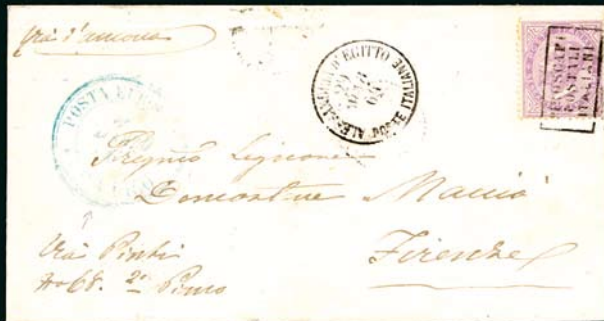 Via d'ancona
ALESSANDRIA D'EGITTO
POSTE ITALIANE
29
MAR
PIROSCAFI
POSTALI
ITALIANI
POSTA EUROPEA
Pregmo Signore
Demostene Macciò
Firenze
Via Pinti
No 68. 2º Piano